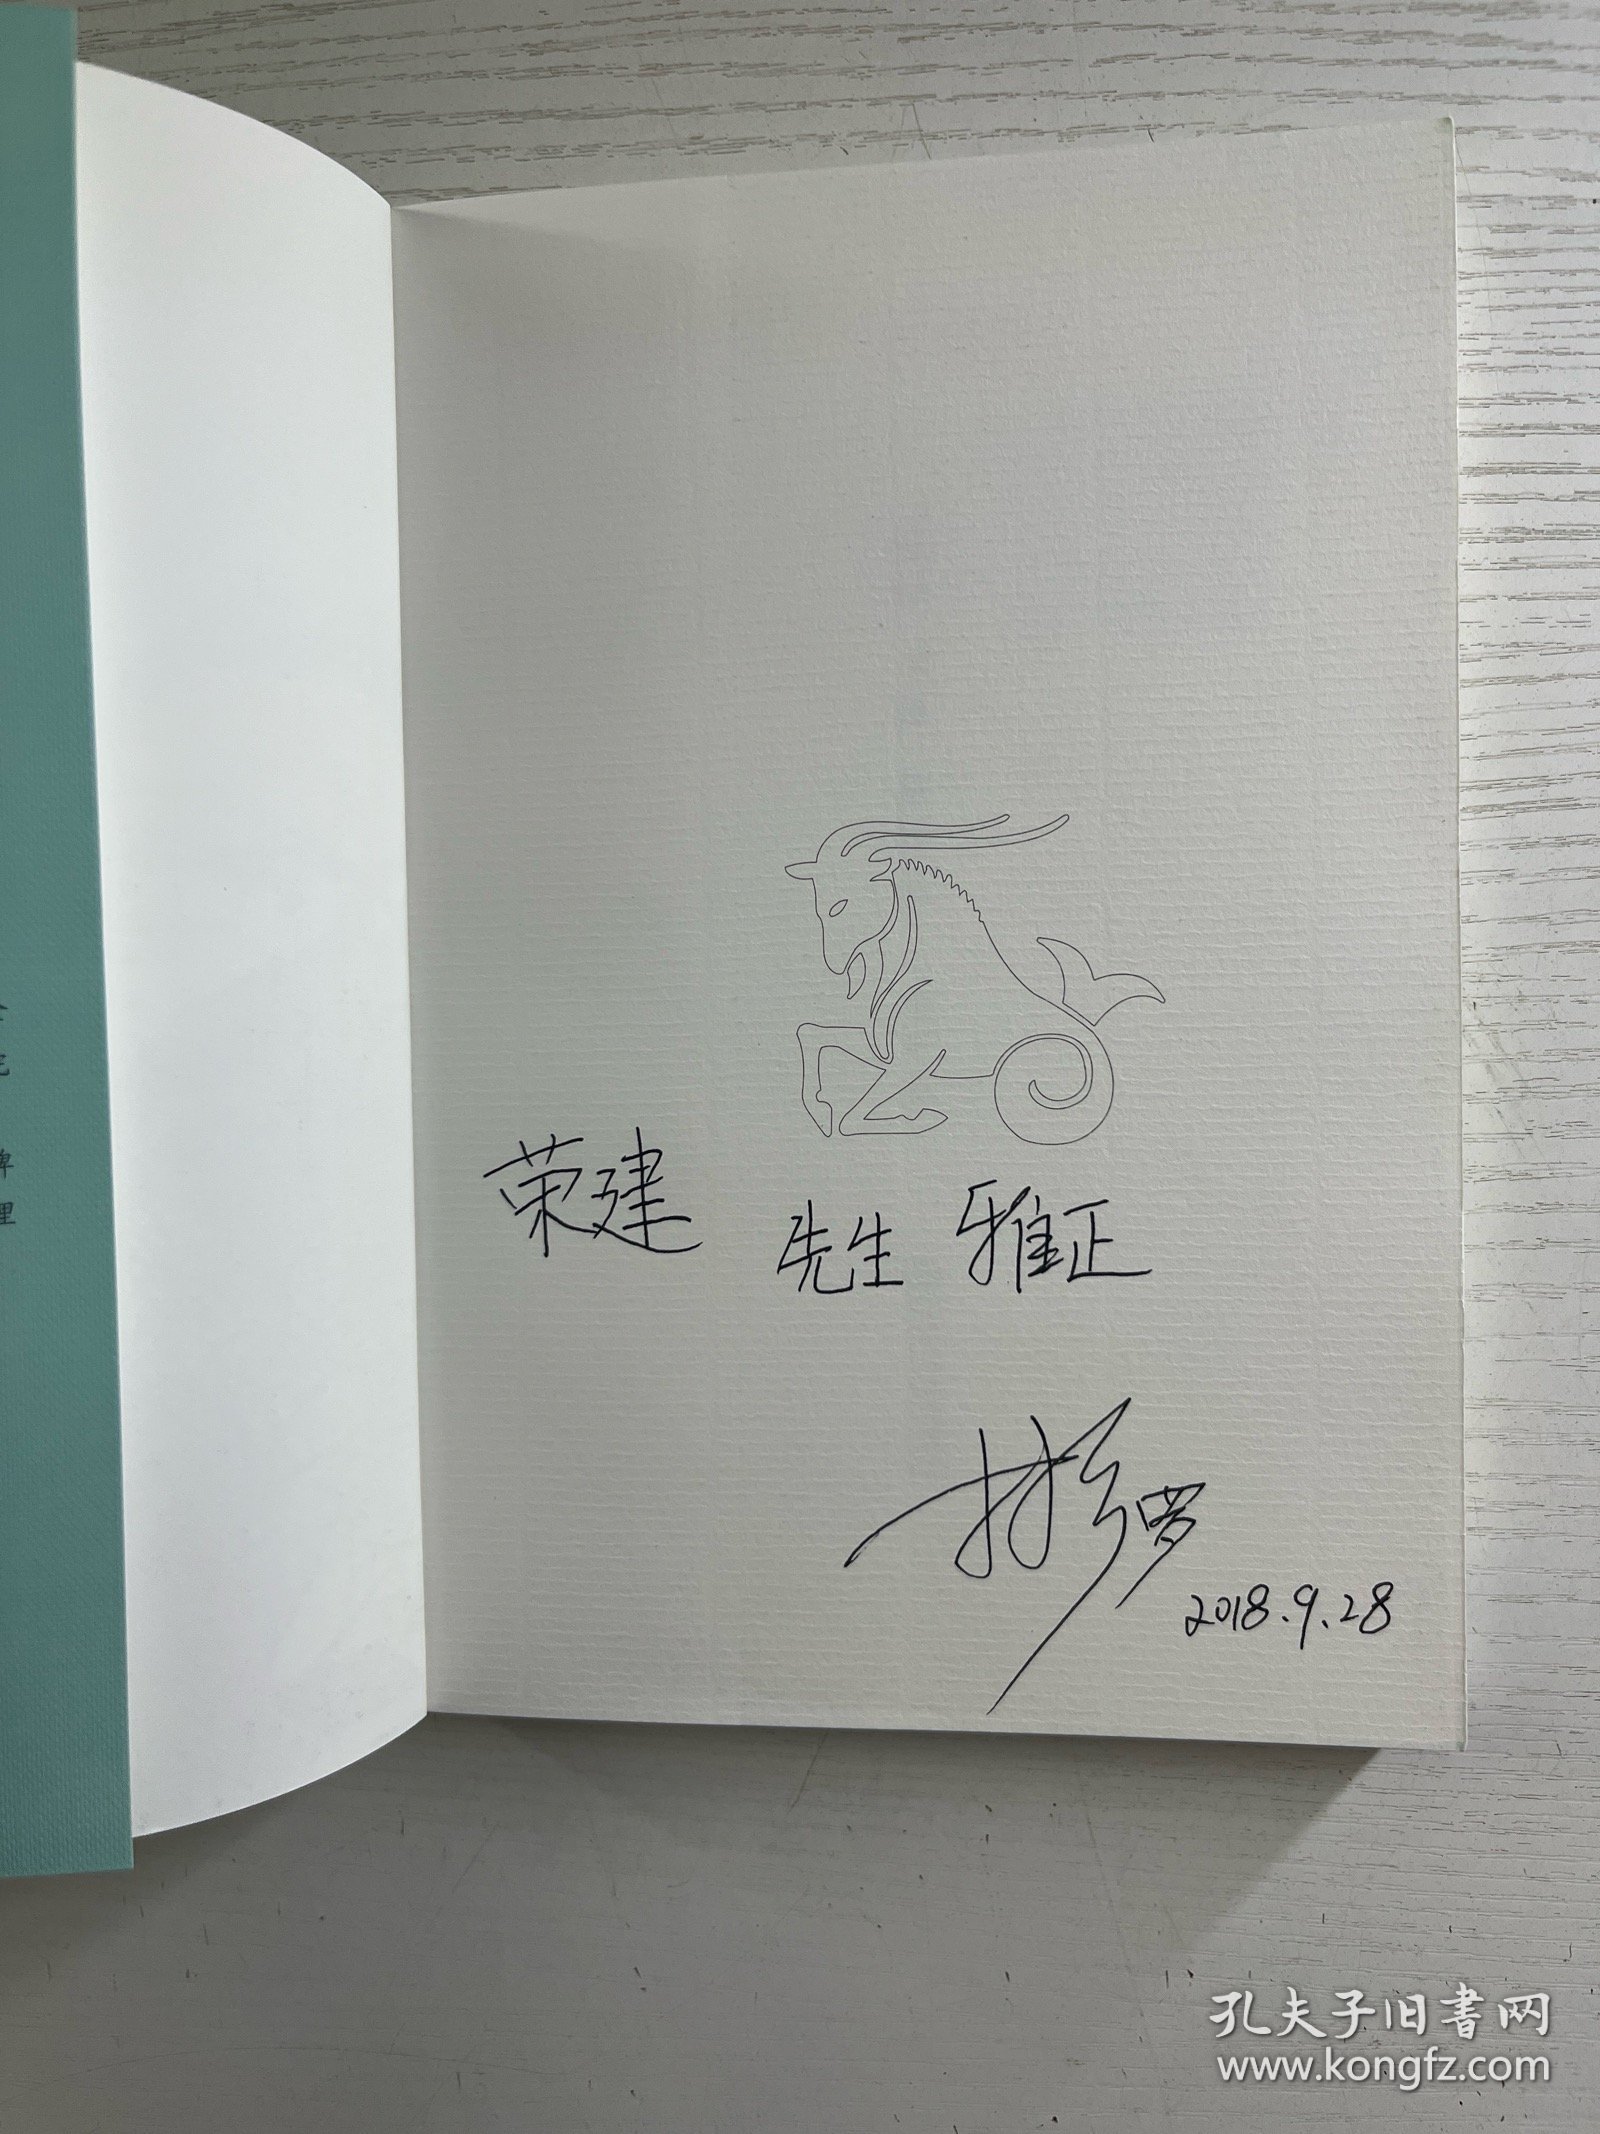 荣建
先生 雅正
2018.9.28
理
孔夫子旧书网
www.kongfz.com